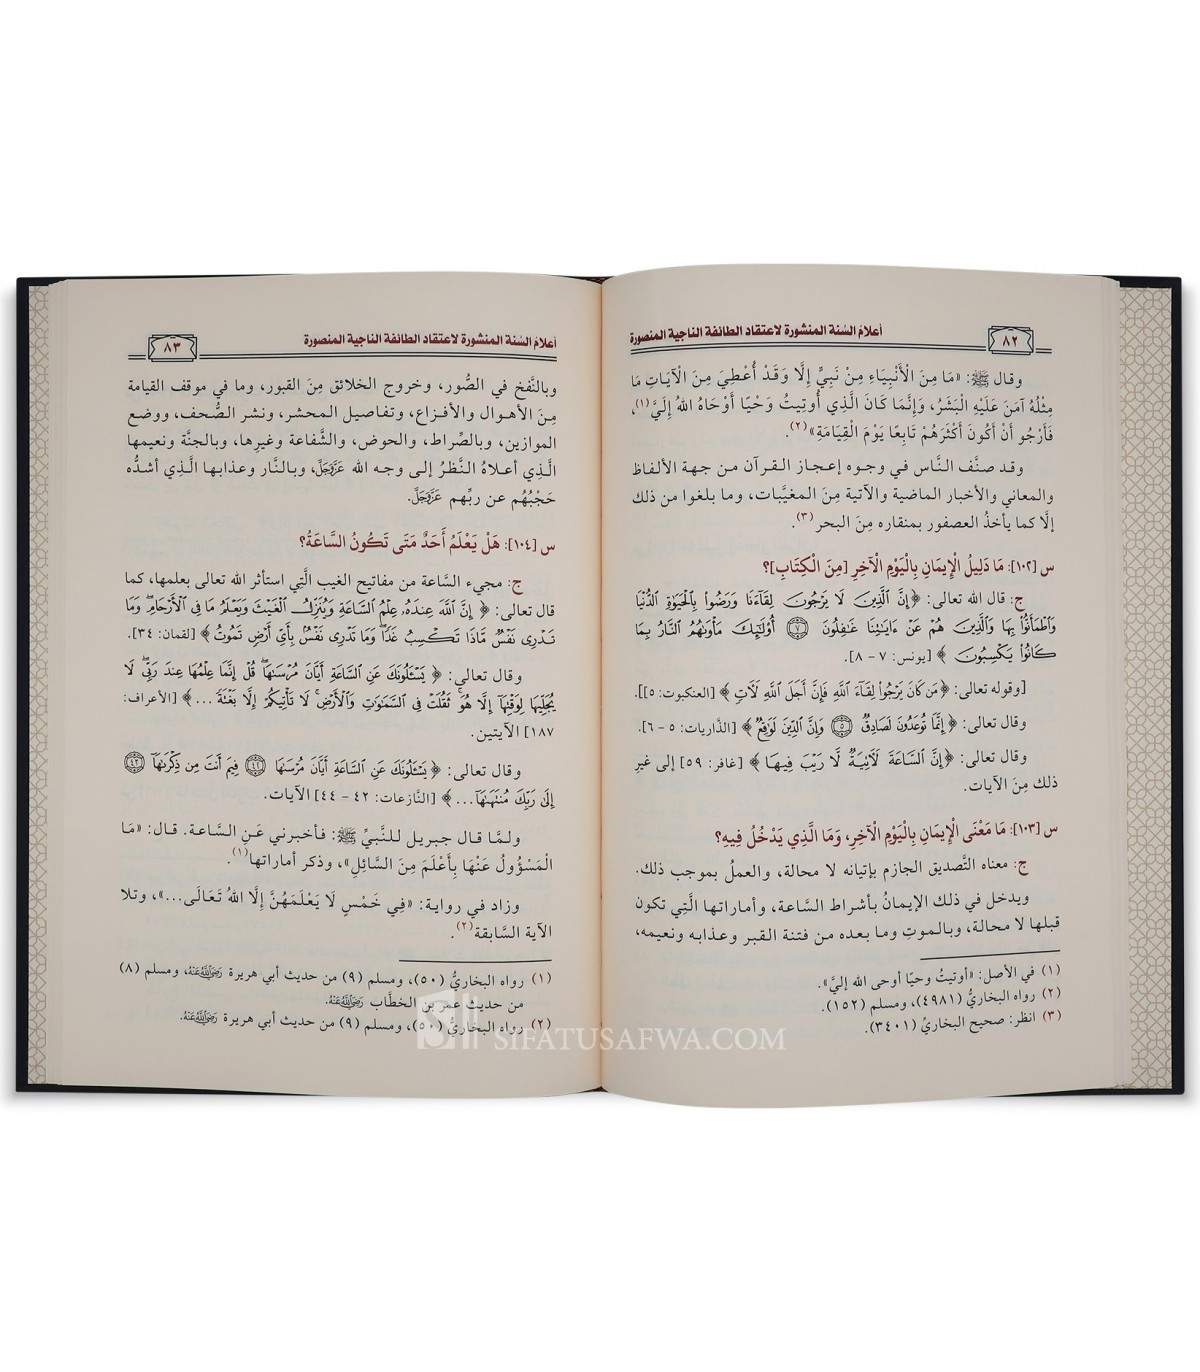 ٨٢
أعلام السنة المنشورة لاعتقاد الطائفة الناجية المنصورة
وقال ﷺ: «مَا مِنَ الْأَنْبِيَاءِ مِنْ نَبِيٍّ إِلَّا وَقَدْ أُعْطِيَ مِنَ الْآيَاتِ مَا
مِثْلُهُ آمَنَ عَلَيْهِ الْبَشَرُ، وَإِنَّمَا كَانَ الَّذِي أُوتِيتُ وَحْيًا أَوْحَاهُ اللهُ إِلَيَّ(١)،
فَأَرْجُو أَنْ أَكُونَ أَكْثَرَهُمْ تَابِعًا يَوْمَ الْقِيَامَةِ»(٢).
وقد صنَّف النَّاس في وجوه إعجاز القرآن من جهة الألفاظ
والمعاني والأخبار الماضية والآتية مِنَ المغيَّبات، وما بلغوا من ذلك
إلَّا كما يأخذُ العصفور بمنقاره مِنَ البحر(٣).
س [١٠٢]: مَا دَلِيلُ الْإِيمَانِ بِالْيَوْمِ الْآخِرِ [مِنَ الْكِتَابِ]؟
ج: قال الله تعالى: ﴿إِنَّ ٱلَّذِينَ لَا يَرْجُونَ لِقَآءَنَا وَرَضُوا۟ بِٱلْحَيَوٰةِ ٱلدُّنْيَا
وَٱطْمَأَنُّوا۟ بِهَا وَٱلَّذِينَ هُمْ عَنْ ءَايَٰتِنَا غَٰفِلُونَ ۝٧ أُو۟لَٰٓئِكَ مَأْوَىٰهُمُ ٱلنَّارُ بِمَا
كَانُوا۟ يَكْسِبُونَ﴾ [يونس: ٧ - ٨].
[وقوله تعالى: ﴿مَن كَانَ يَرْجُوا۟ لِقَآءَ ٱللَّهِ فَإِنَّ أَجَلَ ٱللَّهِ لَآتٍ﴾ [العنكبوت: ٥]].
وقال تعالى: ﴿إِنَّمَا تُوعَدُونَ لَصَادِقٌ ۝٥ وَإِنَّ ٱلدِّينَ لَوَٰقِعٌ﴾ [الذَّاريات: ٥ - ٦].
وقال تعالى: ﴿إِنَّ ٱلسَّاعَةَ لَآتِيَةٌ لَّا رَيْبَ فِيهَا﴾ [غافر: ٥٩] إلى غيرِ
ذلك مِنَ الآيات.
س [١٠٣]: مَا مَعْنَى الْإِيمَانِ بِالْيَوْمِ الْآخِرِ، وَمَا الَّذِي يَدْخُلُ فِيهِ؟
ج: معناه التَّصديق الجازم بإتيانه لا محالة، والعملُ بموجب ذلك.
ويدخل في ذلك الإيمانُ بأشراط السَّاعة، وأماراتها الَّتي تكون
قبلها لا محالة، وبالموتِ وما بعده من فتنة القبر وعذابه ونعيمه،
(١) في الأصل: «أوتيتُ وحيًا أوحى الله إليَّ».
(٢) رواه البخاريُّ (٤٩٨١)، ومسلم (١٥٢).
(٣) انظر: صحيح البخاريُّ (٣٤٠١).
أعلام السنة المنشورة لاعتقاد الطائفة الناجية المنصورة
٨٣
وبالنَّفخ في الصُّور، وخروج الخلائق مِنَ القبور، وما في موقف القيامة
مِنَ الأهوال والأفزاع، وتفاصيل المحشر، ونشر الصُّحف، ووضع
الموازين، وبالصِّراط، والحوض، والشَّفاعة وغيرها، وبالجنَّة ونعيمها
الَّذي أعلاهُ النَّظرُ إلى وجه الله عَزَّوَجَلَّ، وبالنار وعذابها الَّذي أشدُّه
حَجْبُهُم عن ربِّهم عَزَّوَجَلَّ.
س [١٠٤]: هَلْ يَعْلَمُ أَحَدٌ مَتَى تَكُونُ السَّاعَةُ؟
ج: مجيء السَّاعة من مفاتيح الغيب الَّتي استأثر الله تعالى بعلمها، كما
قال تعالى: ﴿إِنَّ ٱللَّهَ عِندَهُۥ عِلْمُ ٱلسَّاعَةِ وَيُنَزِّلُ ٱلْغَيْثَ وَيَعْلَمُ مَا فِى ٱلْأَرْحَامِ ۖ وَمَا
تَدْرِى نَفْسٌ مَّاذَا تَكْسِبُ غَدًا ۖ وَمَا تَدْرِى نَفْسٌۢ بِأَىِّ أَرْضٍ تَمُوتُ﴾ [لقمان: ٣٤].
وقال تعالى: ﴿يَسْـَٔلُونَكَ عَنِ ٱلسَّاعَةِ أَيَّانَ مُرْسَىٰهَا ۖ قُلْ إِنَّمَا عِلْمُهَا عِندَ رَبِّى ۖ لَا
يُجَلِّيهَا لِوَقْتِهَآ إِلَّا هُوَ ۚ ثَقُلَتْ فِى ٱلسَّمَٰوَٰتِ وَٱلْأَرْضِ ۚ لَا تَأْتِيكُمْ إِلَّا بَغْتَةً ...﴾ [الأعراف:
١٨٧] الآيتين.
وقال تعالى: ﴿يَسْـَٔلُونَكَ عَنِ ٱلسَّاعَةِ أَيَّانَ مُرْسَىٰهَا ۝٤٢ فِيمَ أَنتَ مِن ذِكْرَىٰهَآ ۝٤٣
إِلَىٰ رَبِّكَ مُنتَهَىٰهَآ ...﴾ [النَّازعات: ٤٢ - ٤٤] الآيات.
ولمَّا قال جبريل للنَّبيِّ ﷺ: فأخبرني عَنِ السَّاعة. قال: «مَا
الْمَسْؤُولُ عَنْهَا بِأَعْلَمَ مِنَ السَّائِلِ»، وذكر أماراتها(١).
وزاد في رواية: «فِي خَمْسٍ لَا يَعْلَمُهُنَّ إِلَّا اللهُ تَعَالَى...»، وتلا
الآية السَّابقة(٢).
(١) رواه البخاريُّ (٥٠)، ومسلم (٩) من حديث أبي هريرة رَضِيَ اللَّهُ عَنْهُ، ومسلم (٨)
من حديث عمر بن الخطَّاب رَضِيَ اللَّهُ عَنْهُ.
(٢) رواه البخاريُّ (٥٠)، ومسلم (٩) من حديث أبي هريرة رَضِيَ اللَّهُ عَنْهُ.
SIFATUSAFWA.COM